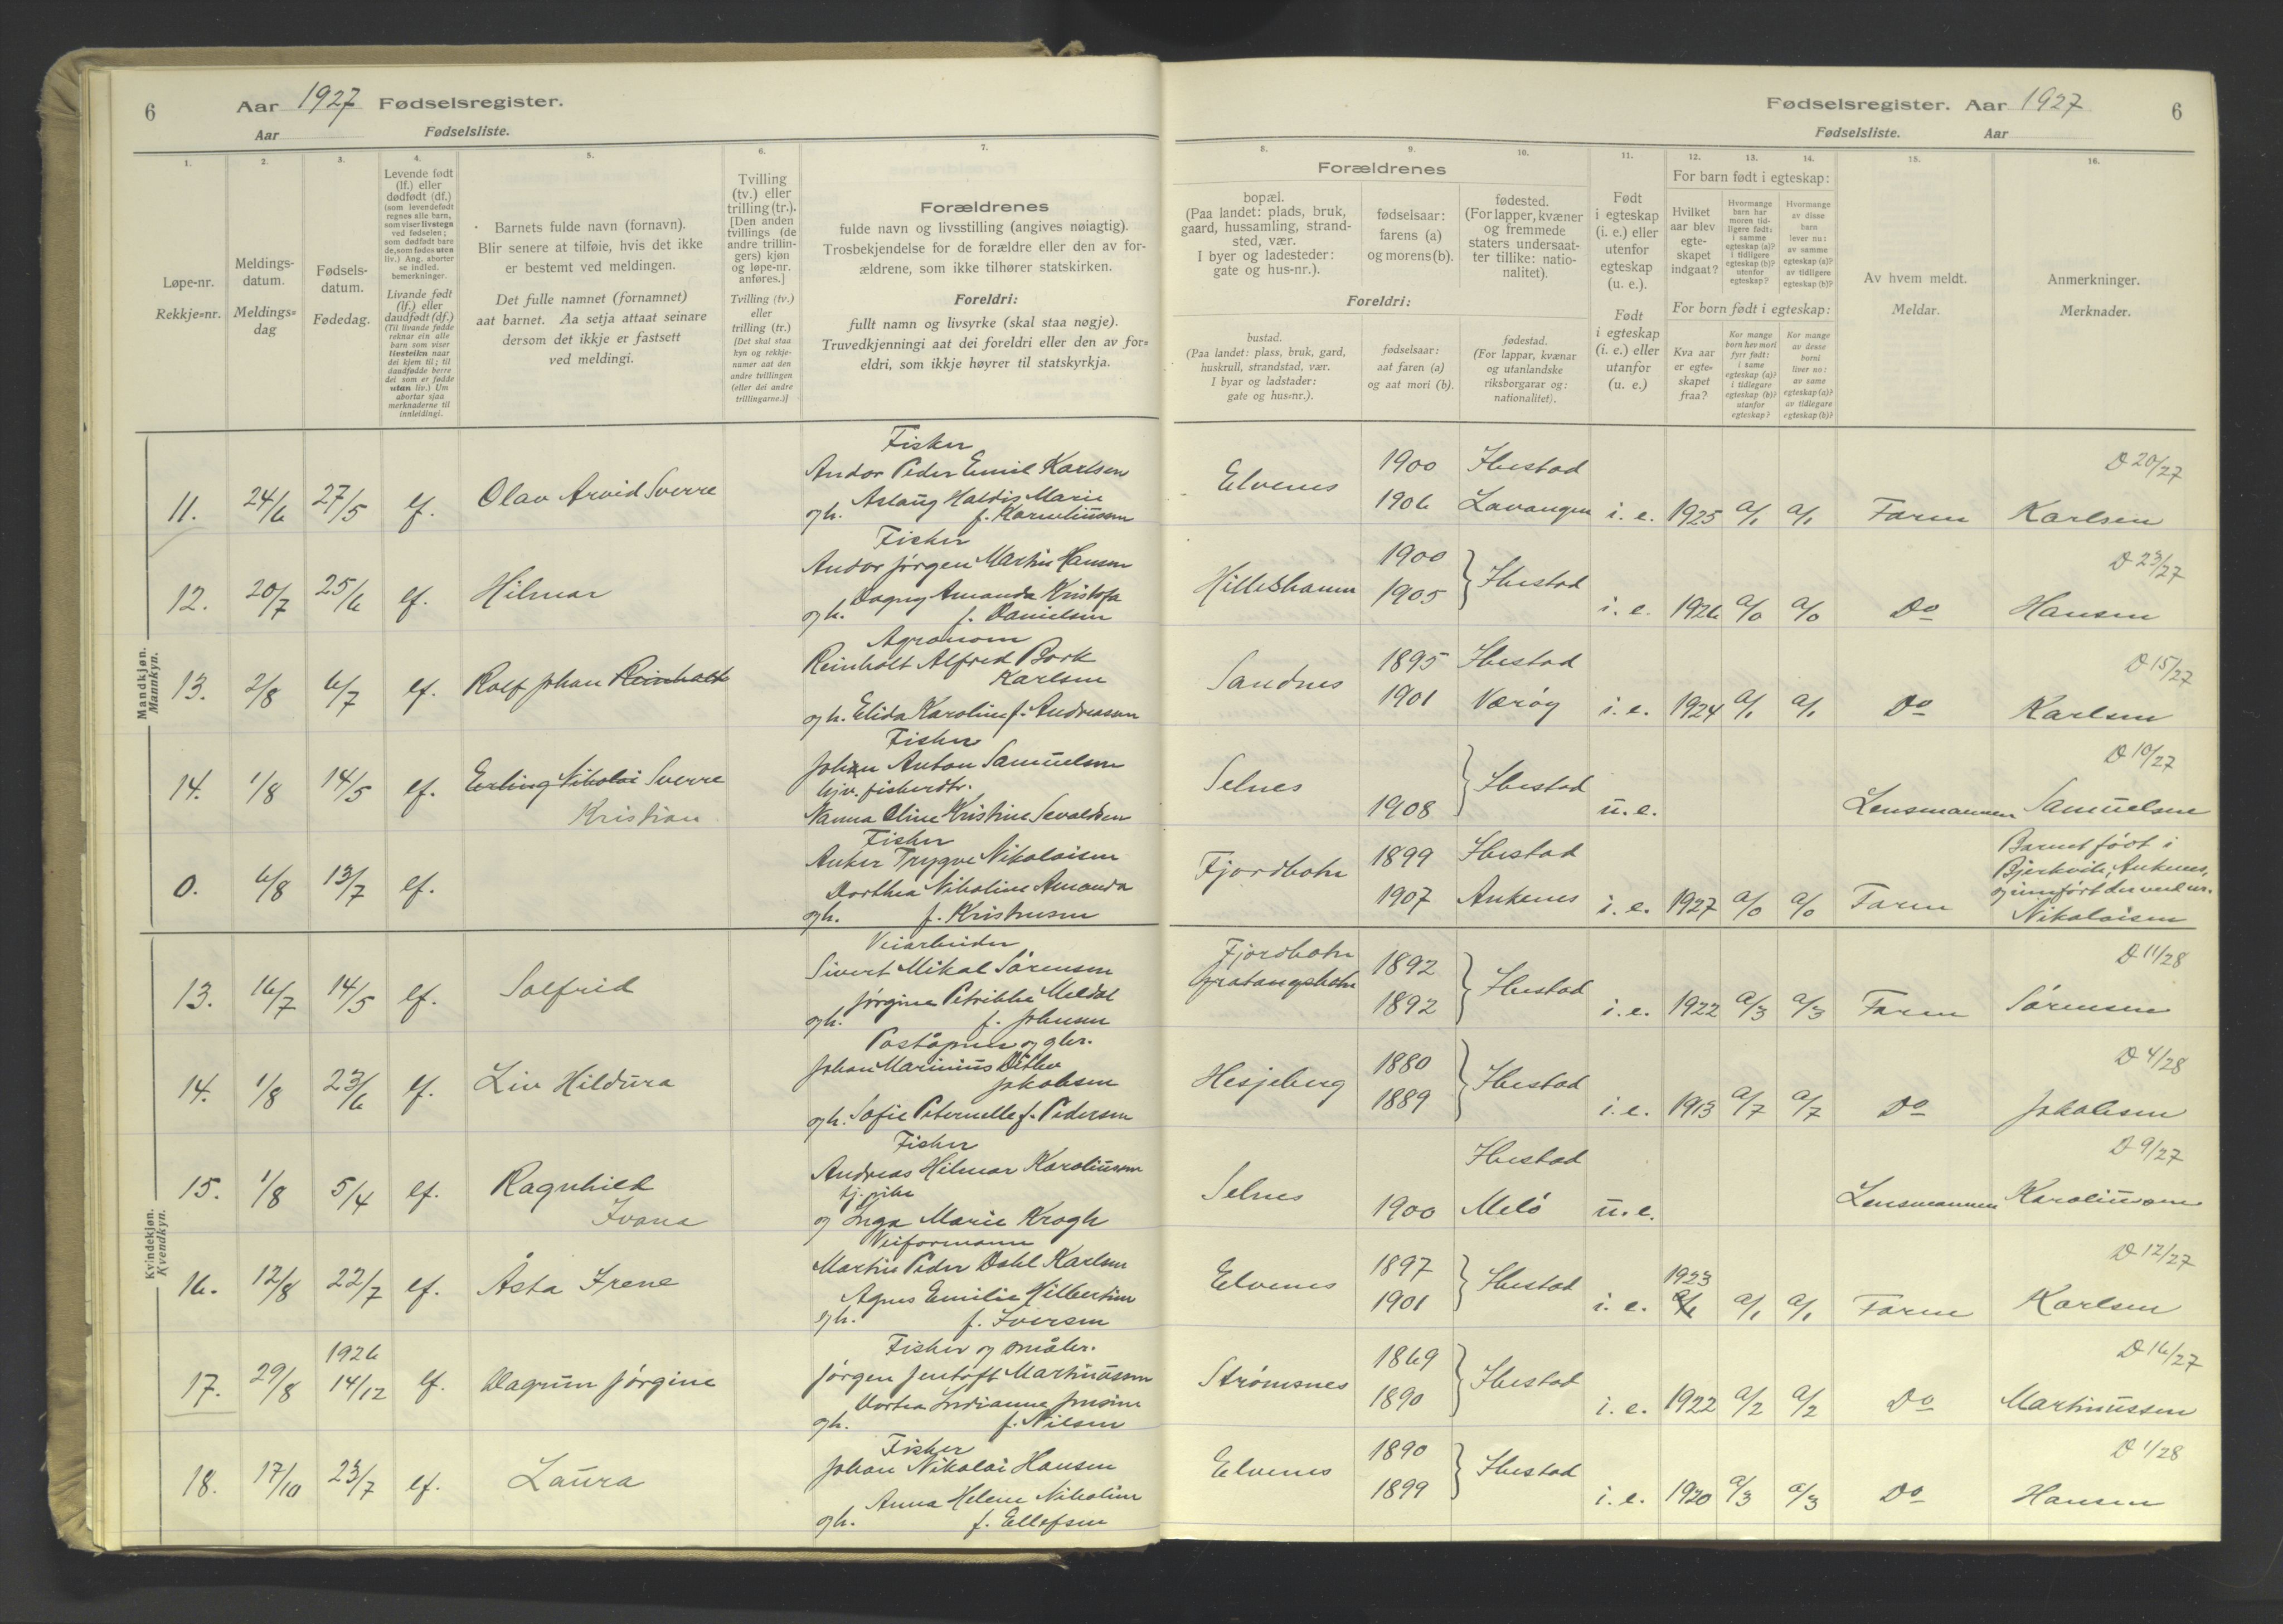 6
Aar 1927 Fødselsregister.
Aar Fødselsliste.
1. 2. 3. 4. 5. 6. 7.
Løpe-nr.
Rekkje-nr.
Meldings-
datum.
Meldings-
dag
Fødsels-
datum.
Fødedag.
Levende født
(lf.) eller
dødfødt (df.)
(som levendefødt
regnes alle barn,
som viser livstegn
ved fødselen;
som dødfødt bare
de, som fødes uten
liv.) Ang. aborter
se indled.
bemerkninger.
Livande født
(lf.) eller
daudfødt (df.)
(Til livande fødde
reknar ein alle
barn som viser
livsteikn naar
dei kjem til; til
daudfødde berre
dei som er fødde
utan liv.) Um
abortar sjaa
merknaderne til
innleidingi.
Barnets fulde navn (fornavn).
Blir senere at tilføie, hvis det ikke
er bestemt ved meldingen.
Det fulle namnet (fornamnet)
aat barnet. Aa setja attaat seinare
dersom det ikkje er fastsett
ved meldingi.
Tvilling
(tv.) eller
trilling (tr.).
[Den anden
tvillings (de
andre trillin-
gers) kjøn
og løpe-nr.
anføres.]
Tvilling (tv.)
eller
trilling (tr.)
[Det skal staa
kyn og rekkje-
numer aat den
andre tvillingen
(eller dei andre
trillingarne.)]
Forældrenes
fulde navn og livsstilling (angives nøiagtig).
Trosbekjendelse for de forældre eller den av for-
ældrene, som ikke tilhører statskirken.
Foreldri:
fullt namn og livsyrke (skal staa nøgje).
Truvedkjenningi aat dei foreldri eller den av for-
eldri, som ikkje høyrer til statskyrkja.
Mandkjøn.
Mannkyn.
11. 24/6 27/5 lf. Olav Arvid Sverre
Fisker
Andor Peder Emil Karlsen
Aslaug Haldis Marie
og h. f. Karoliussen
12. 20/7 25/6 lf. Hilmar
Fisker
Andor Jørgen Martin Hansen
Dagny Amanda Kristofa
og h. f. Danielsen
13. 2/8 6/7 lf. Rolf Johan Reinholt
Agronom
Reinholt Alfred Bork
Karlsen
og h. Elida Karoline f. Andreassen
14. 1/8 14/5 lf. Erling Nikolai Sverre
Kristian
Fisker
Johan Anton Samuelsen
hjv. fiskerdtr.
Nanna Oline Kristine Sevaldsen
0. 6/8 13/7 lf.
Fisker
Anker Trygve Nikolaisen
Dorthea Nikoline Amanda
og h. f. Kristensen
Kvindekjøn.
Kvendkyn.
13. 16/7 14/5 lf. Solfrid
Veiarbeider
Sivert Mikal Sørensen
Jørgine Petrikke Meldal
og h. f. Johnsen
14. 1/8 23/6 lf. Liv Hildura
Poståpner og gbr.
Johan Marinius Ditlev
Jakobsen
og h. Sofie Peternelle f. Pedersen
15. 1/8 5/4 lf. Ragnhild
Ivana
Fisker
Andreas Hilmar Karoliussen
tj. pike
og Inga Marie Krogh
16. 12/8 22/7 lf. Åsta Irene
Veiformann
Martin Peder Dahl Karlsen
Agnes Emilie Hilbertine
og h. f. Iversen
17. 29/8 1926 14/12 lf. Dagrun Jørgine
Fisker og småbr.
Jørgen Jentoft Martinussen
Dortea Indianna Jensine
og h. f. Nilsen
18. 17/10 23/7 lf. Laura
Fisker
Johan Nikolai Hansen
Anna Helene Nikoline
og h. f. Ellefsen
Fødselsregister. Aar 1927
6
Fødselsliste. Aar
8. 9. 10. 11. 12. 13. 14. 15. 16.
Forældrenes
bopæl.
(Paa landet: plads, bruk,
gaard, hussamling, strand-
sted, vær.
I byer og ladesteder:
gate og hus-nr.).
fødselsaar:
farens (a)
og morens (b).
fødested.
(For lapper, kvæner
og fremmede
staters undersaat-
ter tillike: natio-
nalitet).
Foreldri:
bustad.
(Paa landet: plass, bruk, gard,
huskrull, strandstad, vær.
I byar og ladstader:
gate og hus-nr.).
fødselsaar:
aat faren (a)
og aat mori (b).
fødestad.
(For lappar, kvænar
og utanlandske
riksborgarar og:
nationalitet).
Født
i egteskap
(i. e.) eller
utenfor
egteskap
(u. e.).
Født
i egteskap
(i. e.) eller
utanfor
(u. e.)
For barn født i egteskap:
Hvilket
aar blev
egte-
skapet
indgaat?
Hvormange
barn har
moren tid-
ligere født:
i samme
egteskap (a)?
i tidligere
egteskap (b)?
utenfor
egteskap?
Hvormange
av disse
barn
lever nu:
av samme
egteskap (a)?
av tidligere
egteskap (b)?
For born født i egteskap:
Kva aar
er egte-
skapet
fraa?
Kor mange
born hev mori
fyrr født:
i same
egteskap (a)?
i tidlegare
egteskap (b)?
utanfor
egteskap?
Kor mange
av desse
borni
liver no:
av same
egteskap (a)?
av tidlegare
egteskap (b)?
Av hvem meldt.
Meldar.
Anmerkninger.
Merknader.
Elvenes 1900 Ibestad D 20/27
1906 Lavangen i. e. 1925 a/1 a/1 Faren Karlsen
Hilleshamn 1900 1905 } Ibestad i. e. 1926 a/0 a/0 Do D 23/27 Hansen
Sandnes 1895 Ibestad D 15/27
1901 Værøy i. e. 1924 a/1 a/1 Do Karlsen
Selnes 1908 } Ibestad u. e. Lensmannen D 10/27 Samuelsen
Fjordbotn 1899 Ibestad
1907 Ankenes i. e. 1927 a/0 a/0 Faren
Barnet født i
Bjerkvik, Ankenes,
og innført der ved nr.
Nikolaisen
Fjordbotn
Gratangsbotn 1892 1892 } Ibestad i. e. 1922 a/3 a/3 Faren D 11/28 Sørensen
Hesjeberg 1880 1889 } Ibestad i. e. 1913 a/7 a/7 Do D 4/28 Jakobsen
Selnes Ibestad D 9/27
1900 Melö u. e. Lensmannen Karoliussen
Elvenes 1897 1901 } Ibestad i. e. 1923 a/1 a/1 Faren D 12/27 Karlsen
Strømsnes 1869 1890 } Ibestad i. e. 1922 a/2 a/2 Do D 16/27 Martinussen
Elvenes 1890 1899 } Ibestad i. e. 1920 a/3 a/3 Do D 1/28 Hansen